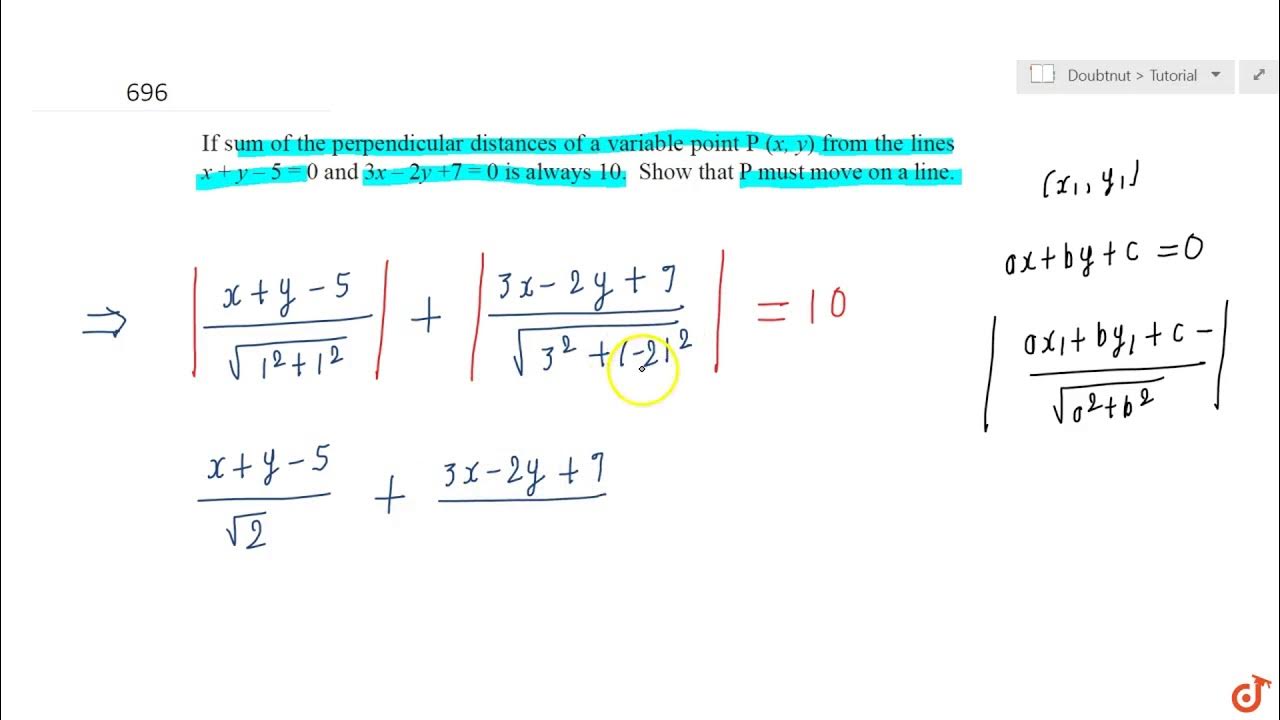 696
Doubtnut > Tutorial
If sum of the perpendicular distances of a variable point P (x, y) from the lines
x + y – 5 = 0 and 3x – 2y +7 = 0 is always 10. Show that P must move on a line.
(x₁, y₁)
ax + by + c = 0
| ax₁ + by₁ + c – / √a² + b² |
⇒ | x + y – 5 / √1² + 1² | + | 3x – 2y + 7 / √3² + (–2)² | = 10
x + y – 5 / √2 + 3x – 2y + 7